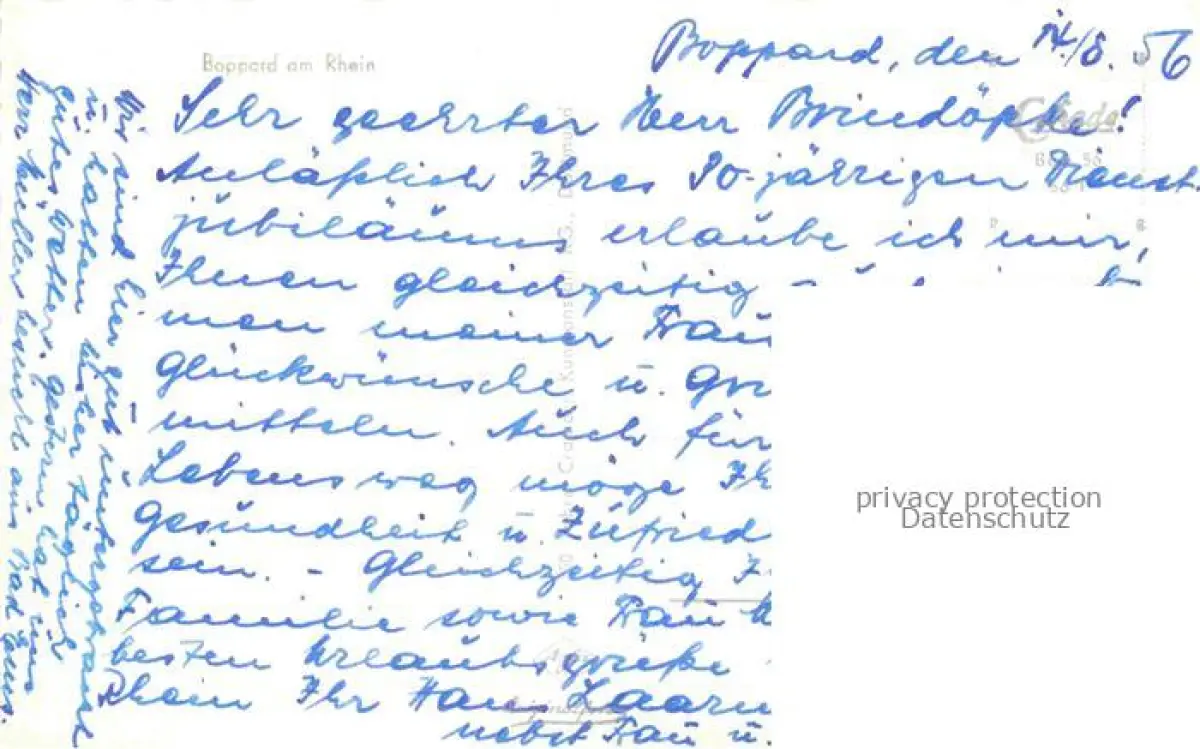 Boppard am Rhein
Boppard, den 14./8. 56
Sehr geehrter Herr
Anläßlich Ihres 20-jährigen Dienst-
jubiläums erlaube ich mir,
Ihnen gleichzeitig -
men meiner Frau
Glückwünsche u.
mitteln. Auch für
Lebensweg möge Ih
Gesundheit u. Zufried
sein. - Gleichzeitig I
Familie sowie Frau
besten Urlaubsgrüße
Rhein Ihr Hans Laarm
nebst Frau u.
Wir sind hier gut untergebracht
u. hatten bisher täglich
gutes Wetter. Gestern hat uns
Herr Müller besucht aus Bad Ems.
privacy protection
Datenschutz